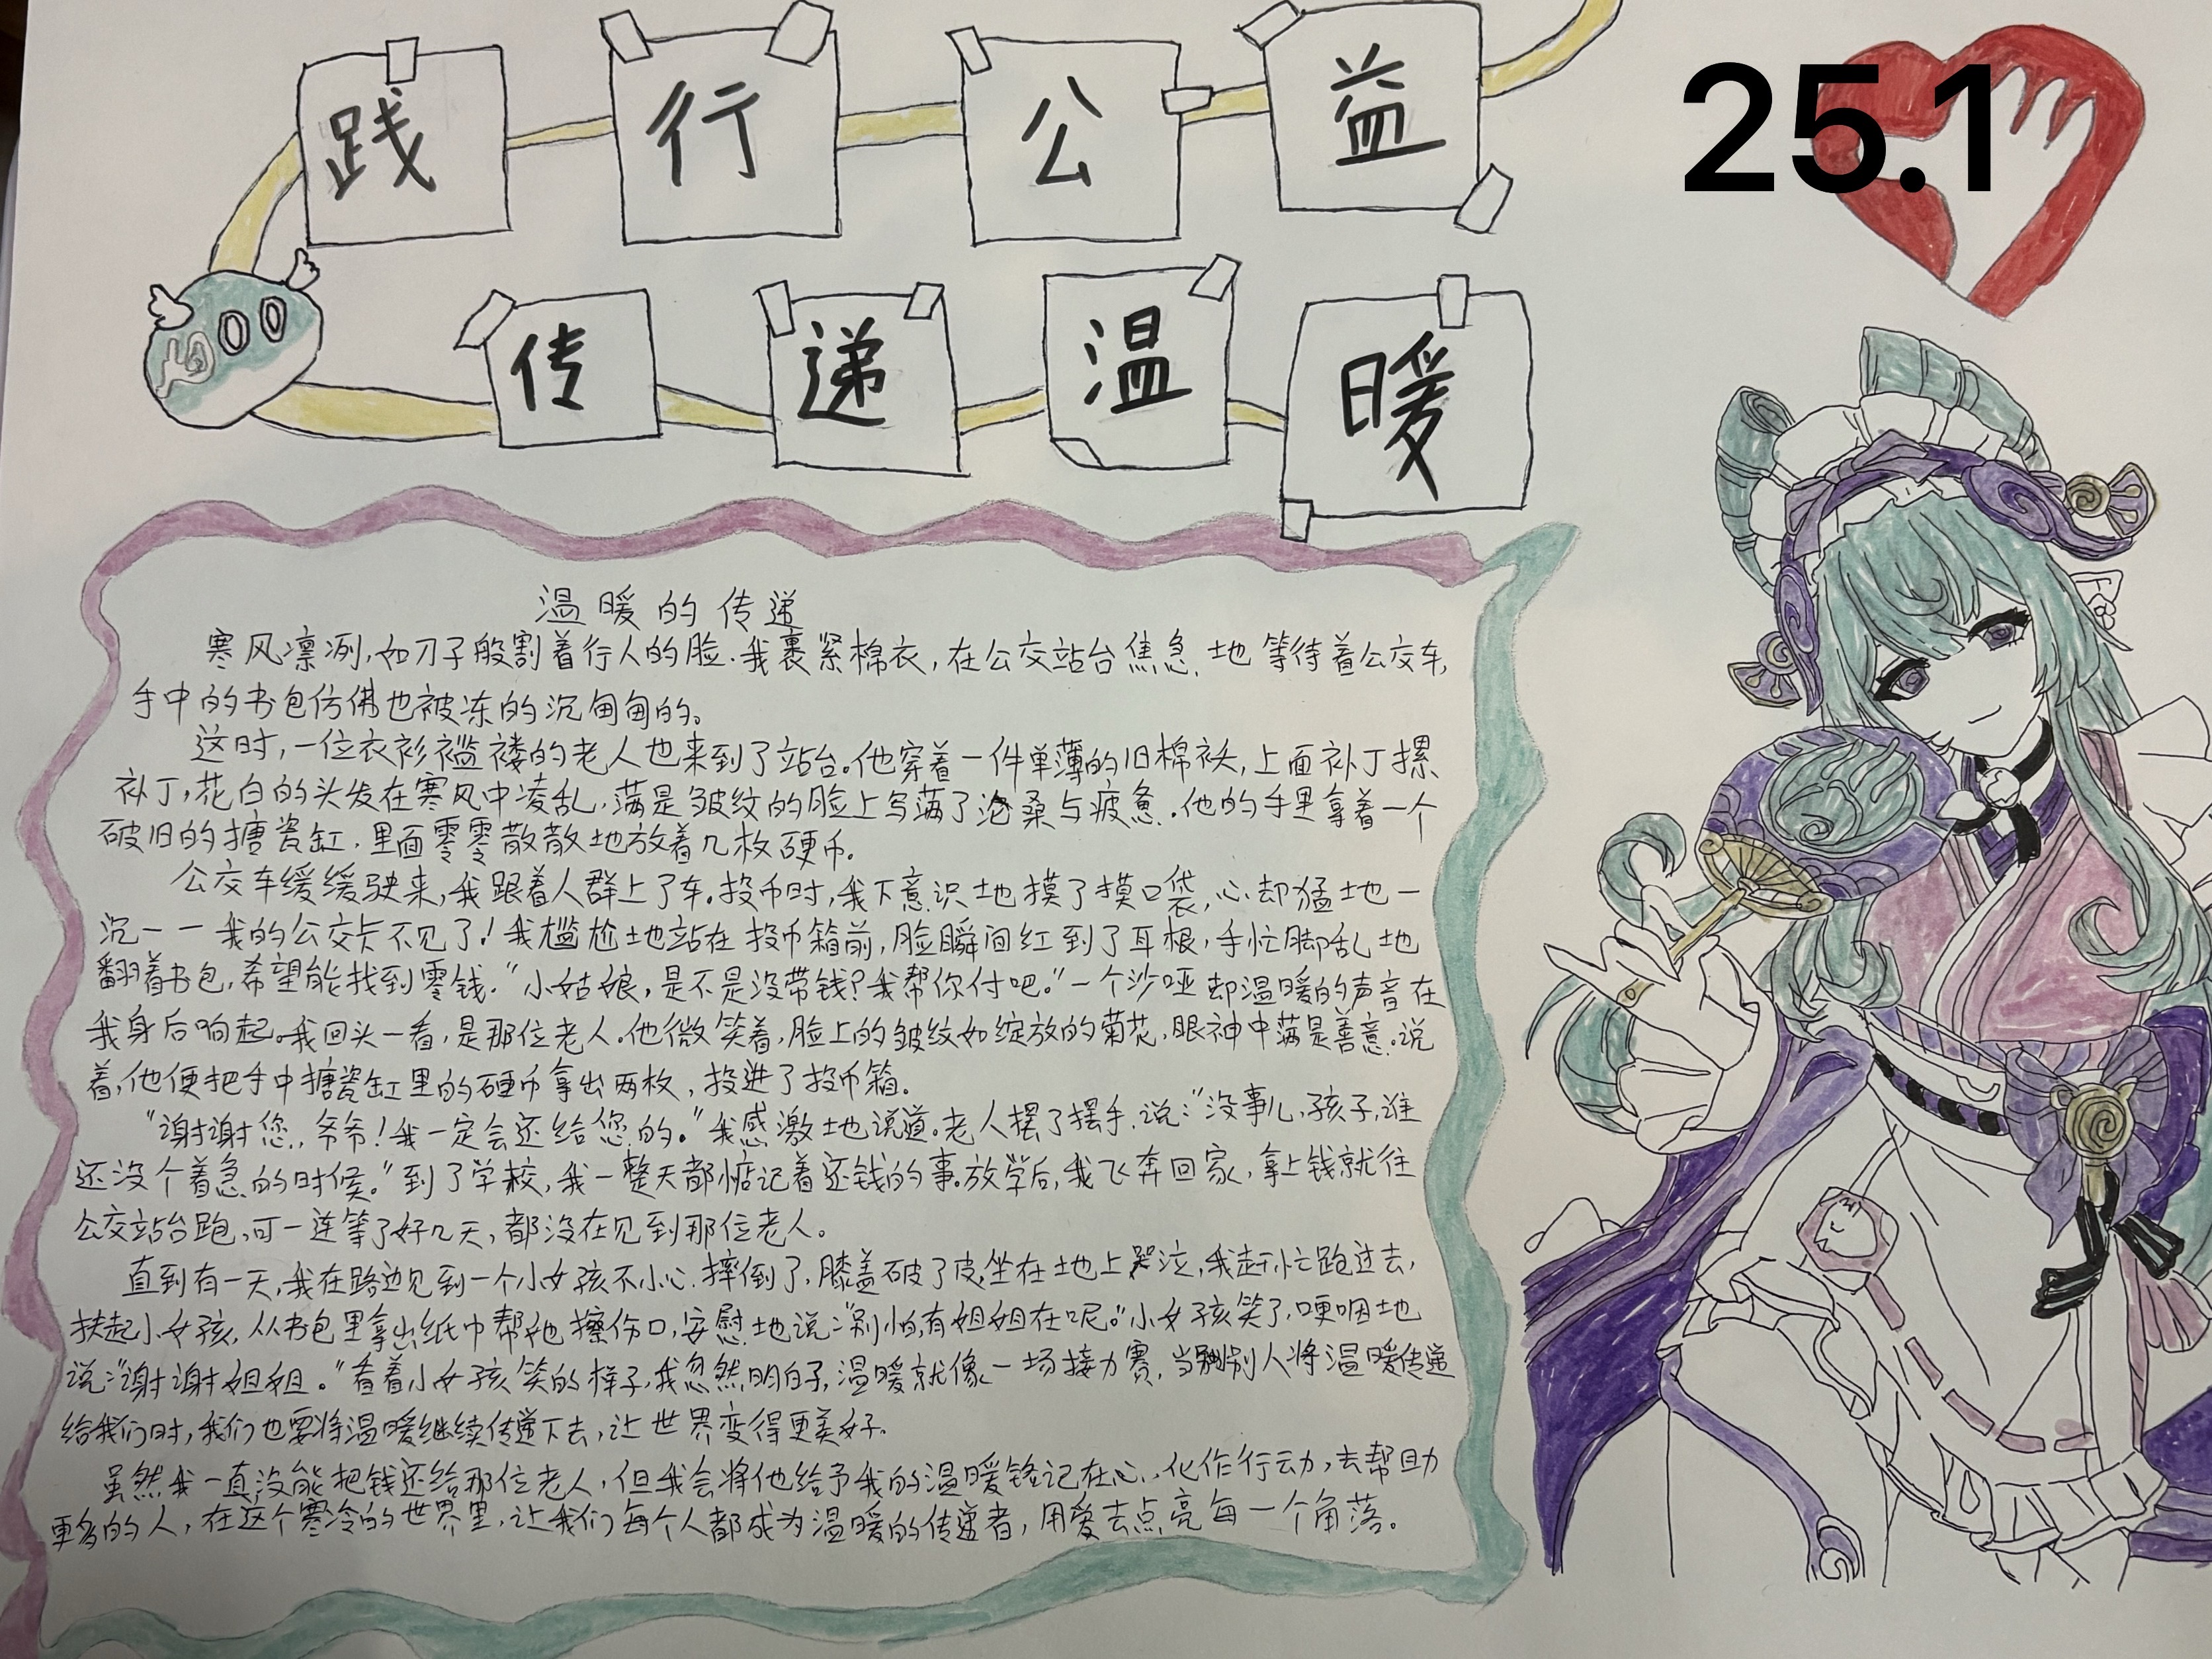 践行公益
25.1
传递温暖
温暖的传递
寒风凛冽,如刀子般割着行人的脸.我裹紧棉衣,在公交站台焦急地等待着公交车,
手中的书包仿佛也被冻的沉甸甸的。
这时,一位衣衫褴褛的老人也来到了站台。他穿着一件单薄的旧棉袄,上面补丁摞
补丁,花白的头发在寒风中凌乱,满是皱纹的脸上写满了沧桑与疲惫.他的手里拿着一个
破旧的搪瓷缸,里面零零散散地放着几枚硬币。
公交车缓缓驶来,我跟着人群上了车。投币时,我下意识地摸了摸口袋,心却猛地一
沉——我的公交卡不见了!我尴尬地站在投币箱前,脸瞬间红到了耳根,手忙脚乱地
翻着书包,希望能找到零钱."小姑娘,是不是没带钱?我帮你付吧."一个沙哑却温暖的声音在
我身后响起。我回头一看,是那位老人.他微笑着,脸上的皱纹如绽放的菊花,眼神中满是善意.说
着,他便把手中搪瓷缸里的硬币拿出两枚,投进了投币箱。
"谢谢您,爷爷!我一定会还给您的。"我感激地说道。老人摆了摆手,说:"没事儿,孩子,谁
还没个着急的时候。"到了学校,我一整天都惦记着还钱的事。放学后,我飞奔回家,拿上钱就往
公交站台跑,可一连等了好几天,都没在见到那位老人。
直到有一天,我在路边见到一个小女孩不小心摔倒了,膝盖破了皮,坐在地上哭泣,我赶忙跑过去,
扶起小女孩,从书包里拿出纸巾帮她擦伤口,安慰地说:"别怕,有姐姐在呢。"小女孩笑了,哽咽地
说:"谢谢姐姐。"看着小女孩笑的样子,我忽然明白了,温暖就像一场接力赛,当别人将温暖传递
给我们时,我们也要将温暖继续传递下去,让世界变得更美好.
虽然我一直没能把钱还给那位老人,但我会将他给予我的温暖铭记在心,化作行动,去帮助
更多的人,在这个寒冷的世界里,让我们每个人都成为温暖的传递者,用爱去点亮每一个角落。